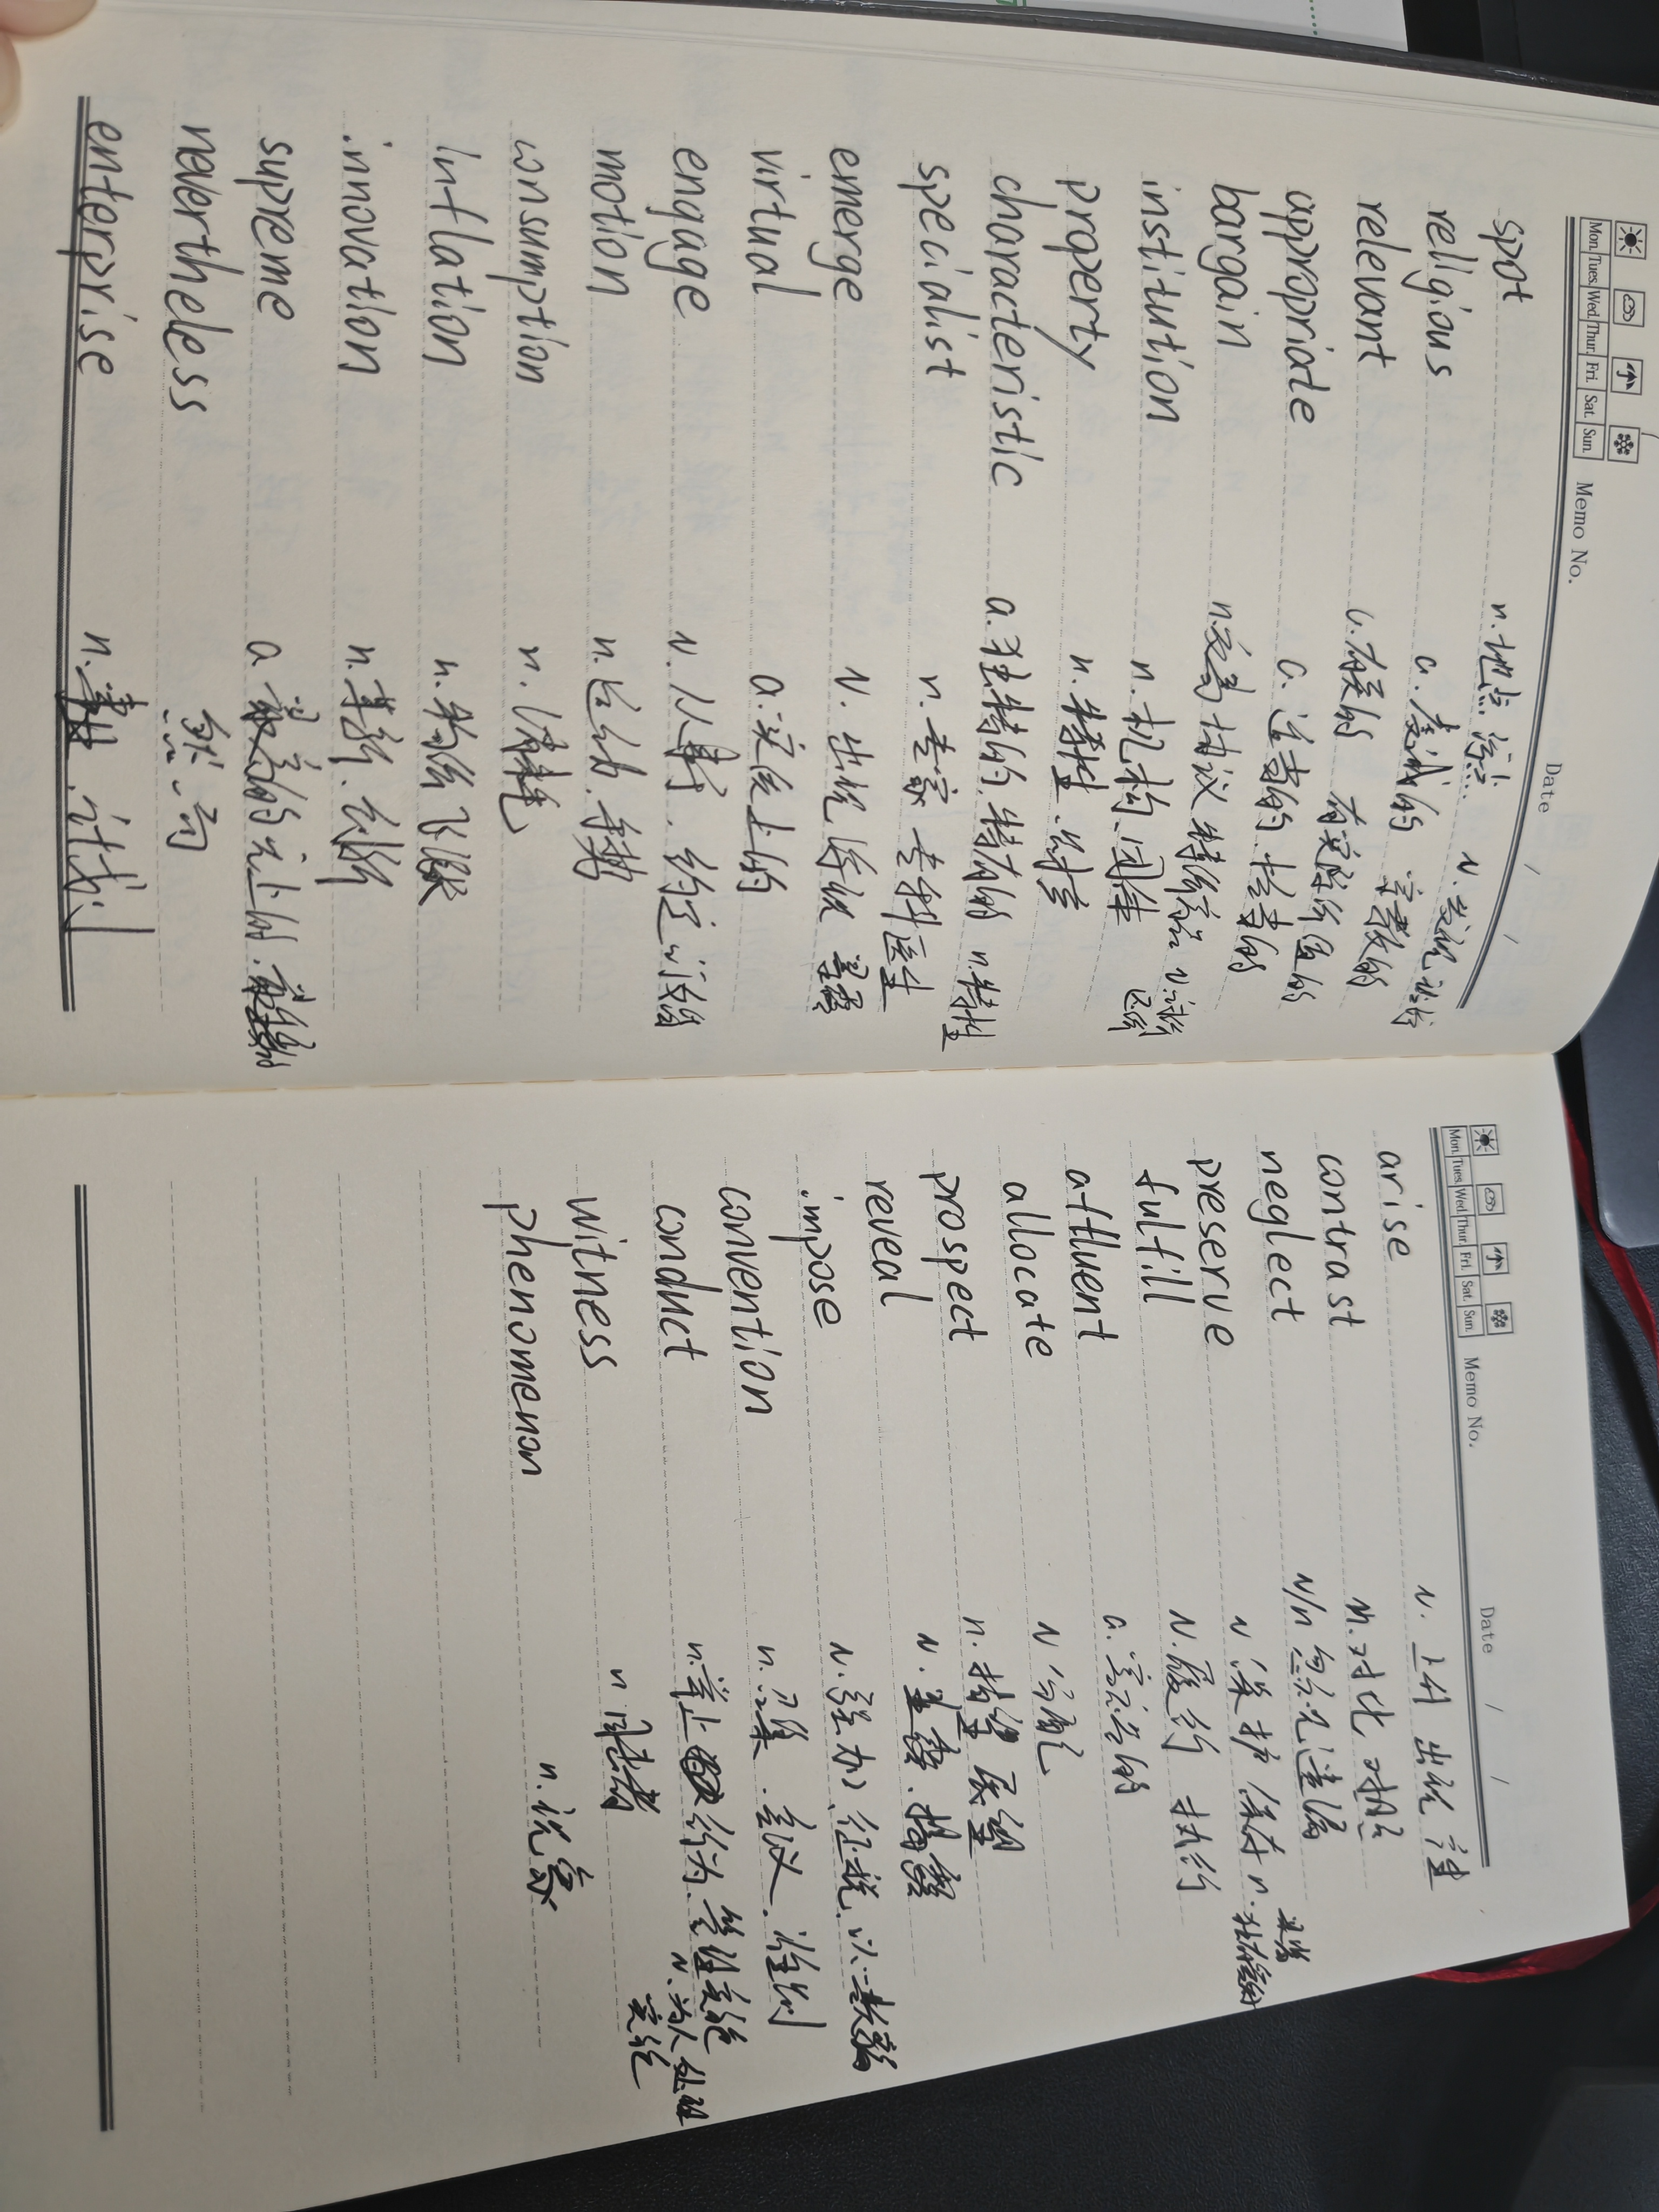 Mon. Tues. Wed. Thur. Fri. Sat. Sun. Memo No. Date / /
spot n.地点.污点. v.发现
religious a.虔诚的 宗教的
relevant a.有关的 有实际价值的
appropriate a.适当的.恰当的
bargain n.交易 协议 特价品 v.讨价还价
institution n.机构.团体
property n.特性.财产
characteristic a.独特的.特有的 n.特性
specialist n.专家 专科医生
emerge v.出现 浮现 显露
virtual a.实质上的
engage v.从事于.约定
motion n.运动.手势
consumption n.消耗
inflation n.物价飞涨
innovation n.革新.创新
supreme a.最高的.无上的.
nevertheless
enterprise n. .计划
Mon. Tues. Wed. Thur. Fri. Sat. Sun. Memo No. Date / /
arise v.上升 出现
contrast n.对比 对照
neglect v/n 忽视 遗漏
preserve v 保护 保存 n.果酱
fulfill v.履行 执行
affluent a.富裕的
allocate v 分配
prospect n.指望 展望
reveal v. .揭露
impose v.强加.征税.以…欺骗
convention n.召集.会议.惯例
conduct n.举止 行为.管理
witness n 目击者
phenomenon n.现象